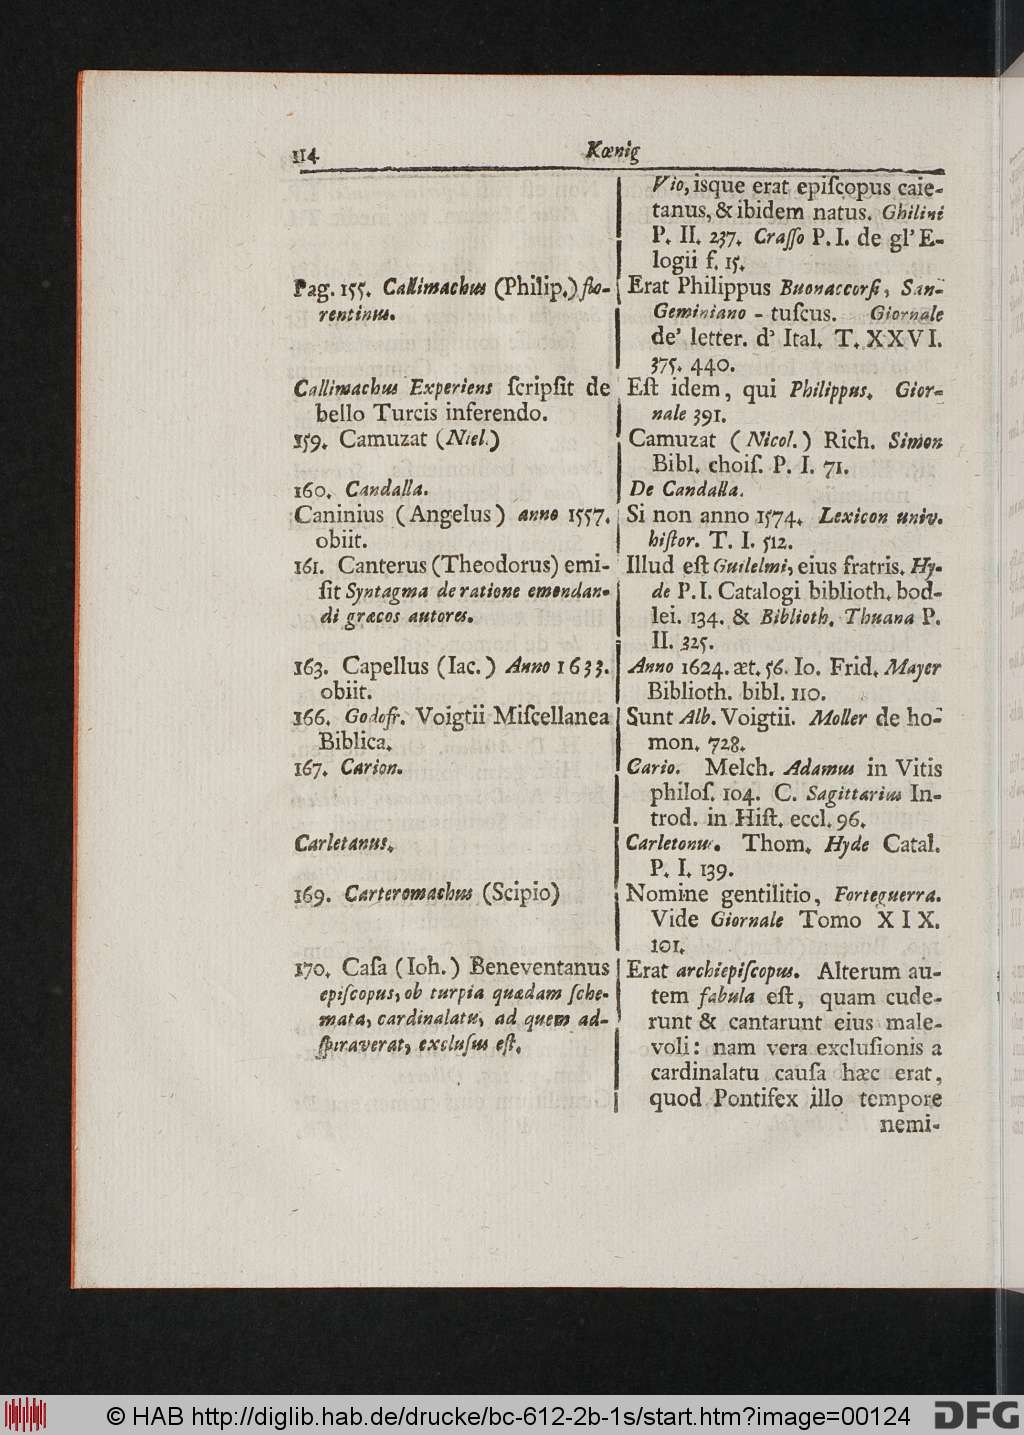 114 Kœnig
Vio, isque erat epiſcopus caie-
tanus, & ibidem natus. Ghilini
P. II. 237. Craſſo P. I. de gl' E-
logii f. 15.
Pag. 155. Callimachus (Philip.) flo-
rentinus.
Erat Philippus Buonaccorſi, San-
Geminiano - tuſcus. Giornale
de' letter. d' Ital. T. XXVI.
375. 440.
Callimachus Experiens ſcripſit de
bello Turcis inferendo.
Eſt idem, qui Philippus. Gior-
nale 391.
159. Camuzat (Niel.)
Camuzat (Nicol.) Rich. Simon
Bibl. choiſ. P. I. 71.
160. Candalla.
De Candalla.
Caninius (Angelus) anno 1557.
obiit.
Si non anno 1574. Lexicon univ.
hiſtor. T. I. 512.
161. Canterus (Theodorus) emi-
ſit Syntagma de ratione emendan-
di græcos autores.
Illud eſt Guilelmi, eius fratris. Hy-
de P. I. Catalogi biblioth. bod-
lei. 134. & Biblioth. Thuana P.
II. 325.
163. Capellus (Iac.) Anno 1633.
obiit.
Anno 1624. æt. 56. Io. Frid. Mayer
Biblioth. bibl. 110.
166. Godofr. Voigtii Miſcellanea
Biblica.
Sunt Alb. Voigtii. Moller de ho-
mon. 728.
167. Carion.
Cario. Melch. Adamus in Vitis
philoſ. 104. C. Sagittarius In-
trod. in Hiſt. eccl. 96.
Carletanus.
Carletonus. Thom. Hyde Catal.
P. I. 139.
169. Carteromachus (Scipio)
Nomine gentilitio, Forteguerra.
Vide Giornale Tomo XIX.
101.
170. Caſa (Ioh.) Beneventanus
epiſcopus, ob turpia quædam ſche-
mata, cardinalatu, ad quem ad-
ſpiraverat, excluſus eſt.
Erat archiepiſcopus. Alterum au-
tem fabula eſt, quam cude-
runt & cantarunt eius male-
voli: nam vera excluſionis a
cardinalatu cauſa hæc erat,
quod Pontifex illo tempore
nemi-
© HAB http://diglib.hab.de/drucke/bc-612-2b-1s/start.htm?image=00124 DFG